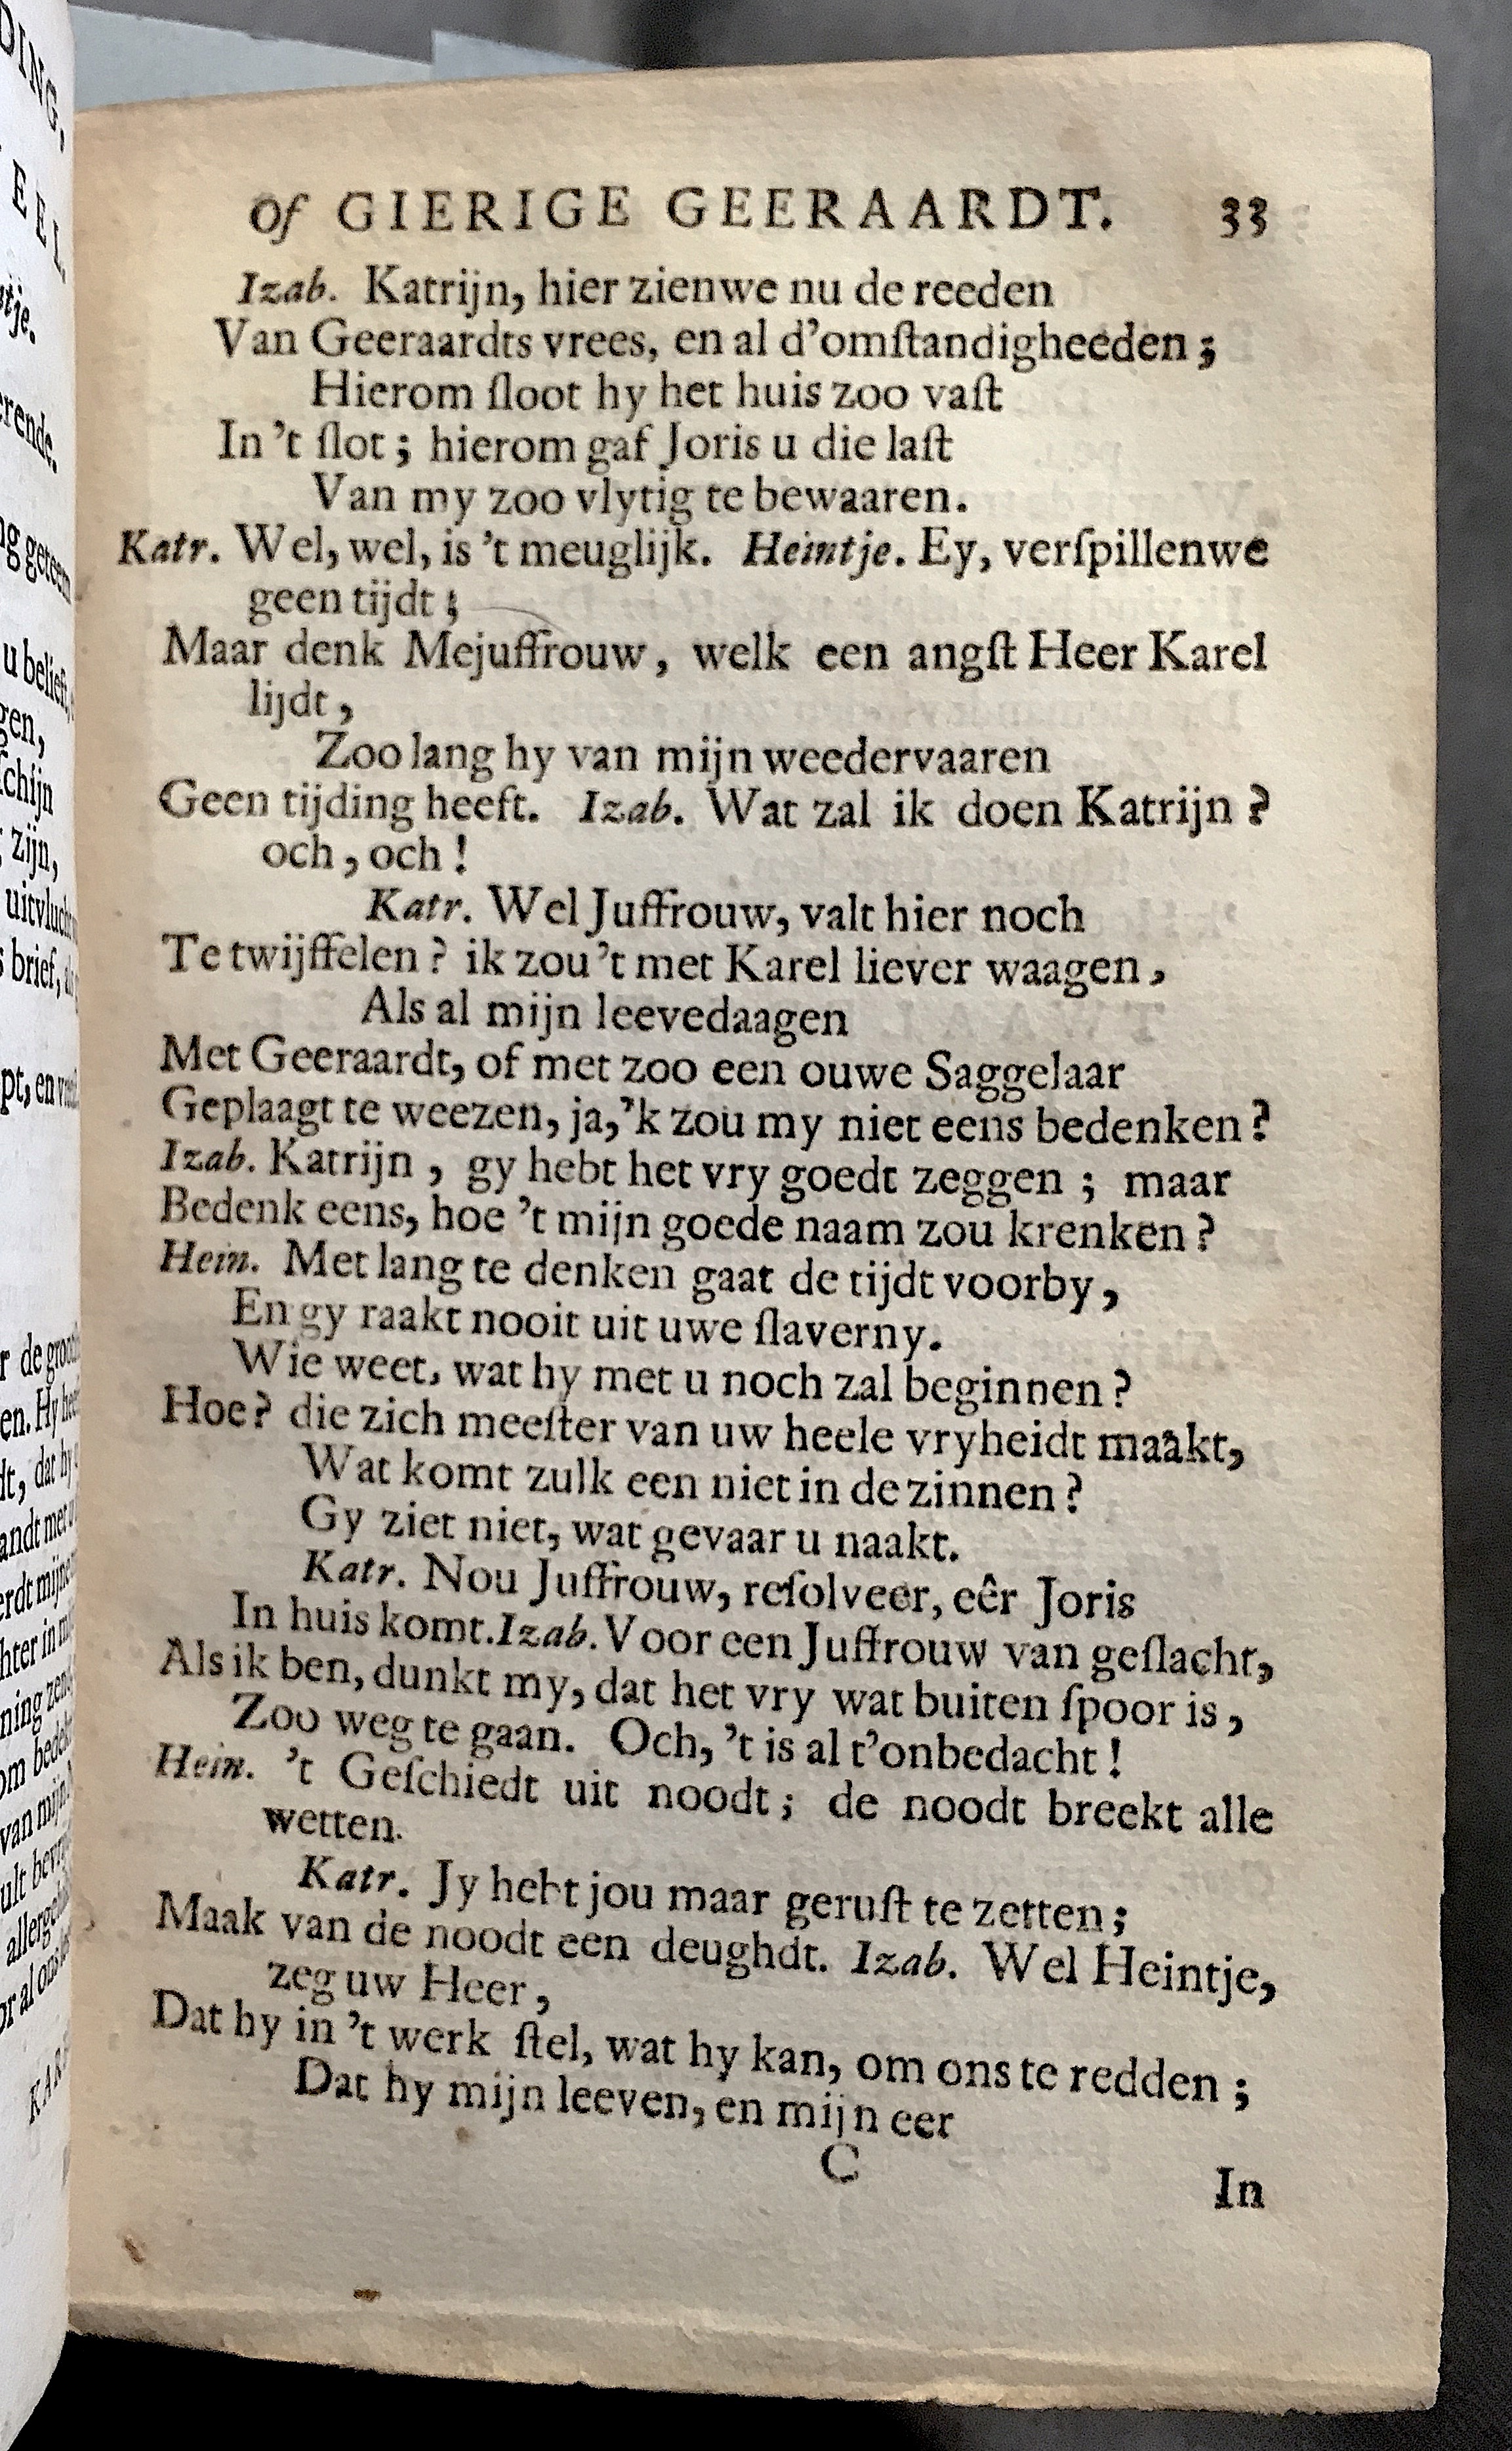 of GIERIGE GEERAARDT. 33
Izab. Katrijn, hier zienwe nu de reeden
Van Geeraardts vrees, en al d'omſtandigheeden;
Hierom ſloot hy het huis zoo vaſt
In 't ſlot; hierom gaf Joris u die laſt
Van my zoo vlytig te bewaaren.
Katr. Wel, wel, is 't meuglijk. Heintje. Ey, verſpillenwe
geen tijdt;
Maar denk Mejuffrouw, welk een angſt Heer Karel
lijdt,
Zoo lang hy van mijn weedervaaren
Geen tijding heeft. Izab. Wat zal ik doen Katrijn?
och, och!
Katr. Wel Juffrouw, valt hier noch
Te twijffelen? ik zou 't met Karel liever waagen,
Als al mijn leevedaagen
Met Geeraardt, of met zoo een ouwe Saggelaar
Geplaagt te weezen, ja, 'k zou my niet eens bedenken?
Izab. Katrijn, gy hebt het vry goedt zeggen; maar
Bedenk eens, hoe 't mijn goede naam zou krenken?
Hein. Met lang te denken gaat de tijdt voorby,
En gy raakt nooit uit uwe ſlaverny.
Wie weet, wat hy met u noch zal beginnen?
Hoe? die zich meeſter van uw heele vryheidt maakt,
Wat komt zulk een niet in de zinnen?
Gy ziet niet, wat gevaar u naakt.
Katr. Nou Juffrouw, reſolveer, eêr Joris
In huis komt. Izab. Voor een Juffrouw van geſlacht,
Als ik ben, dunkt my, dat het vry wat buiten ſpoor is,
Zoo weg te gaan. Och, 't is al t'onbedacht!
Hein. 't Geſchiedt uit noodt; de noodt breekt alle
wetten.
Katr. Jy hebt jou maar geruſt te zetten;
Maak van de noodt een deughdt. Izab. Wel Heintje,
zeg uw Heer,
Dat hy in 't werk ſtel, wat hy kan, om ons te redden;
Dat hy mijn leeven, en mijn eer
C
In